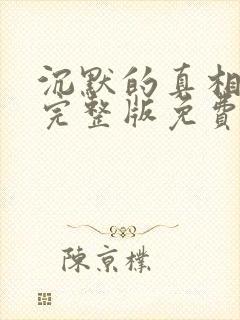 沉默的真相
完整版免費
陳京樸